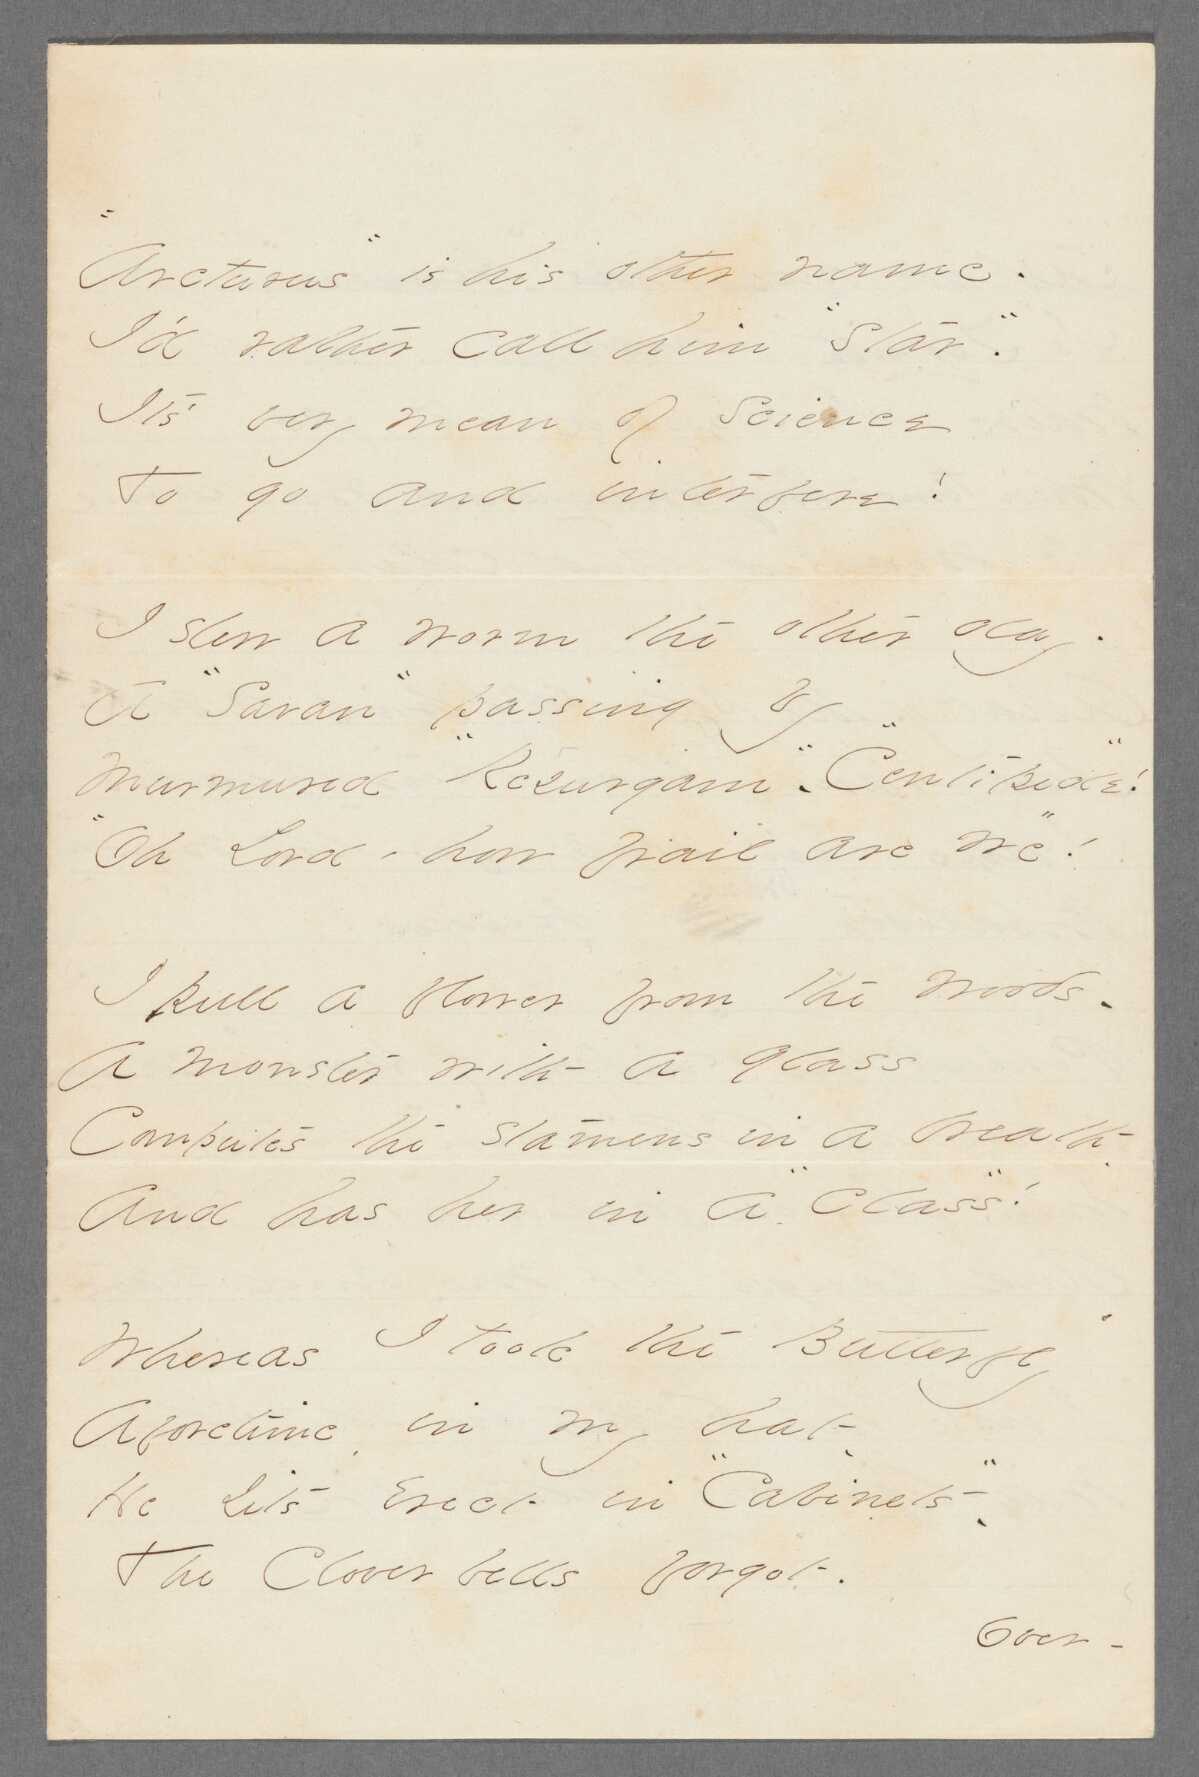 "Arcturus" is his other name.
I'd rather call him "Star".
It's very mean of Science
To go and interfere!
I slew a worm the other day.
A "Savan" passing by
Murmured "Resurgam". "Centipede"!
"Oh Lord - how frail are we"!
I pull a flower from the woods.
A monster with a glass
Computes the stamens in a breath
And has her in a "Class"!
Whereas I took the Butterfly
Aforetime in my hat
He sits erect in "Cabinets".
The Clover bells forgot.
Over -